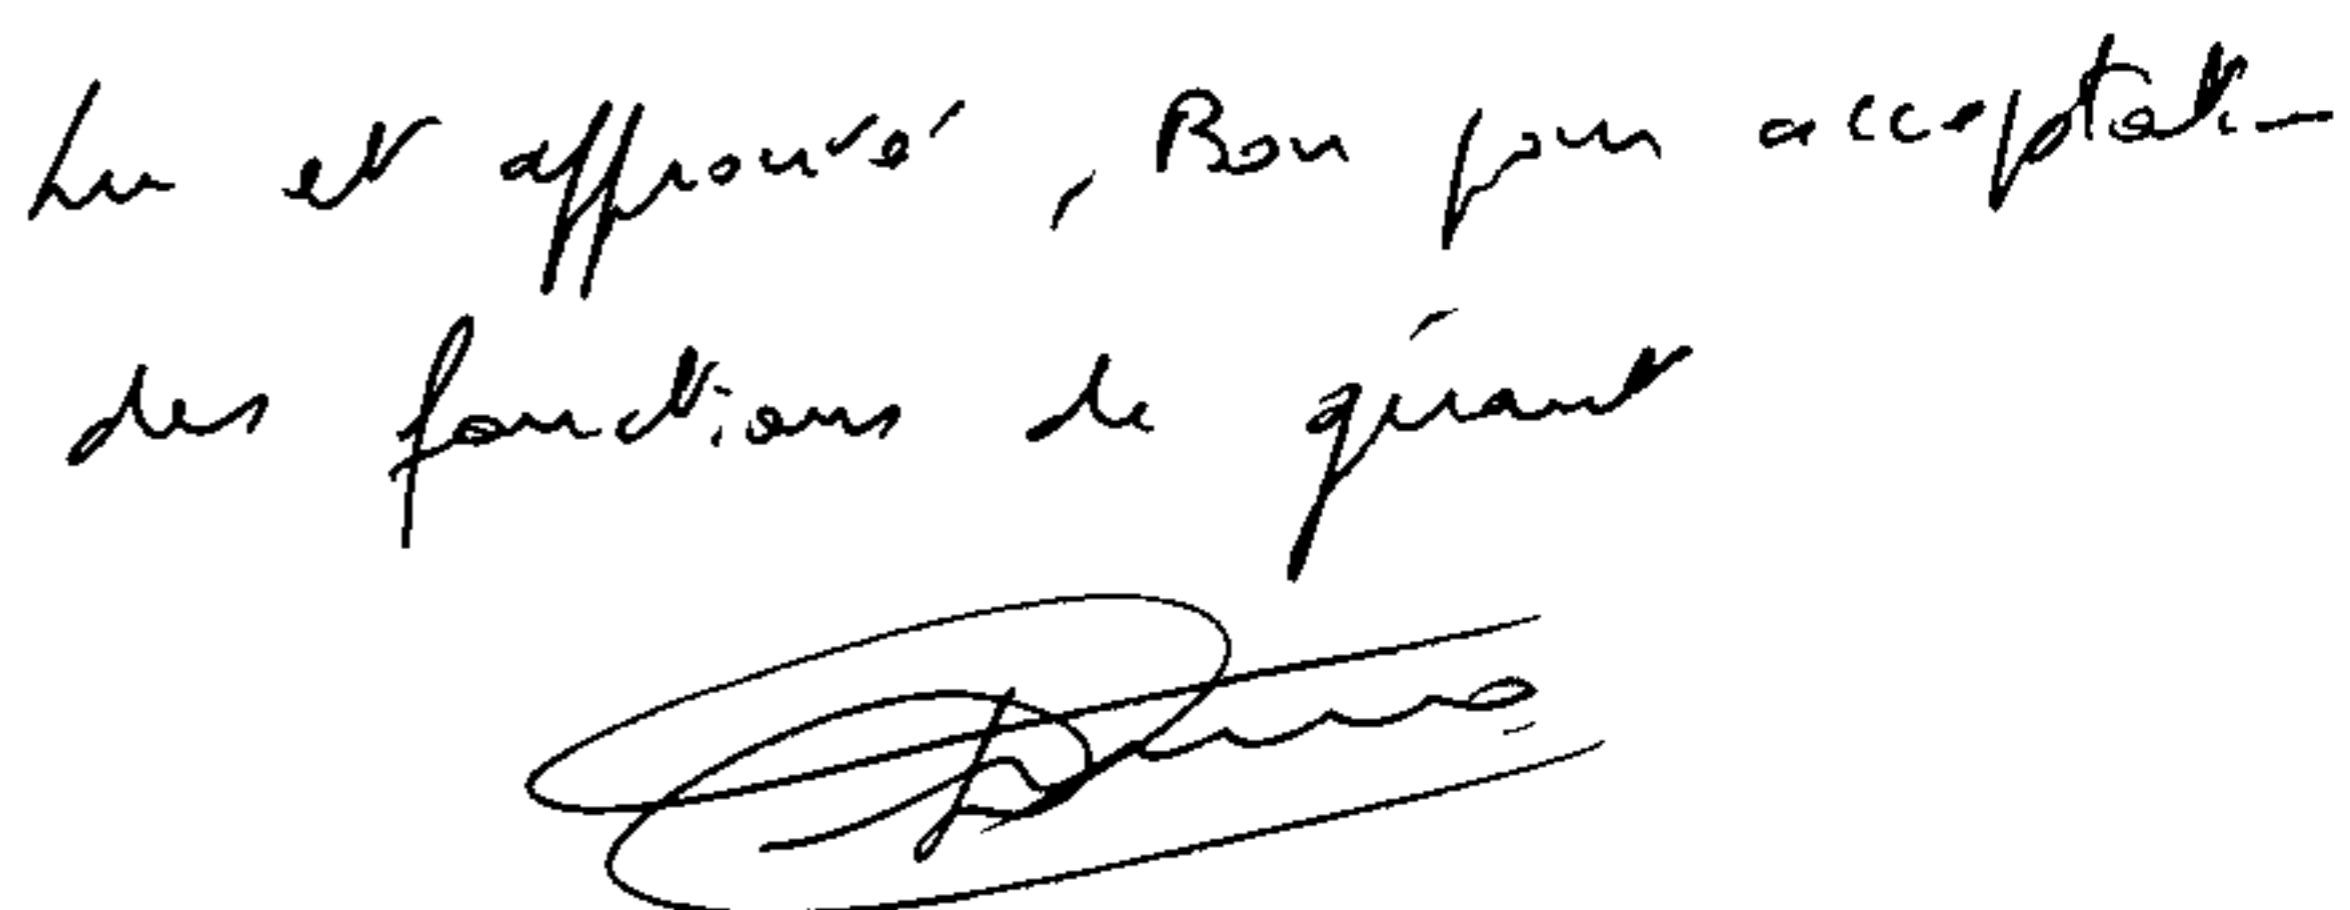 Lu et approuvé, Bon pour acceptation
des fonctions de gérant